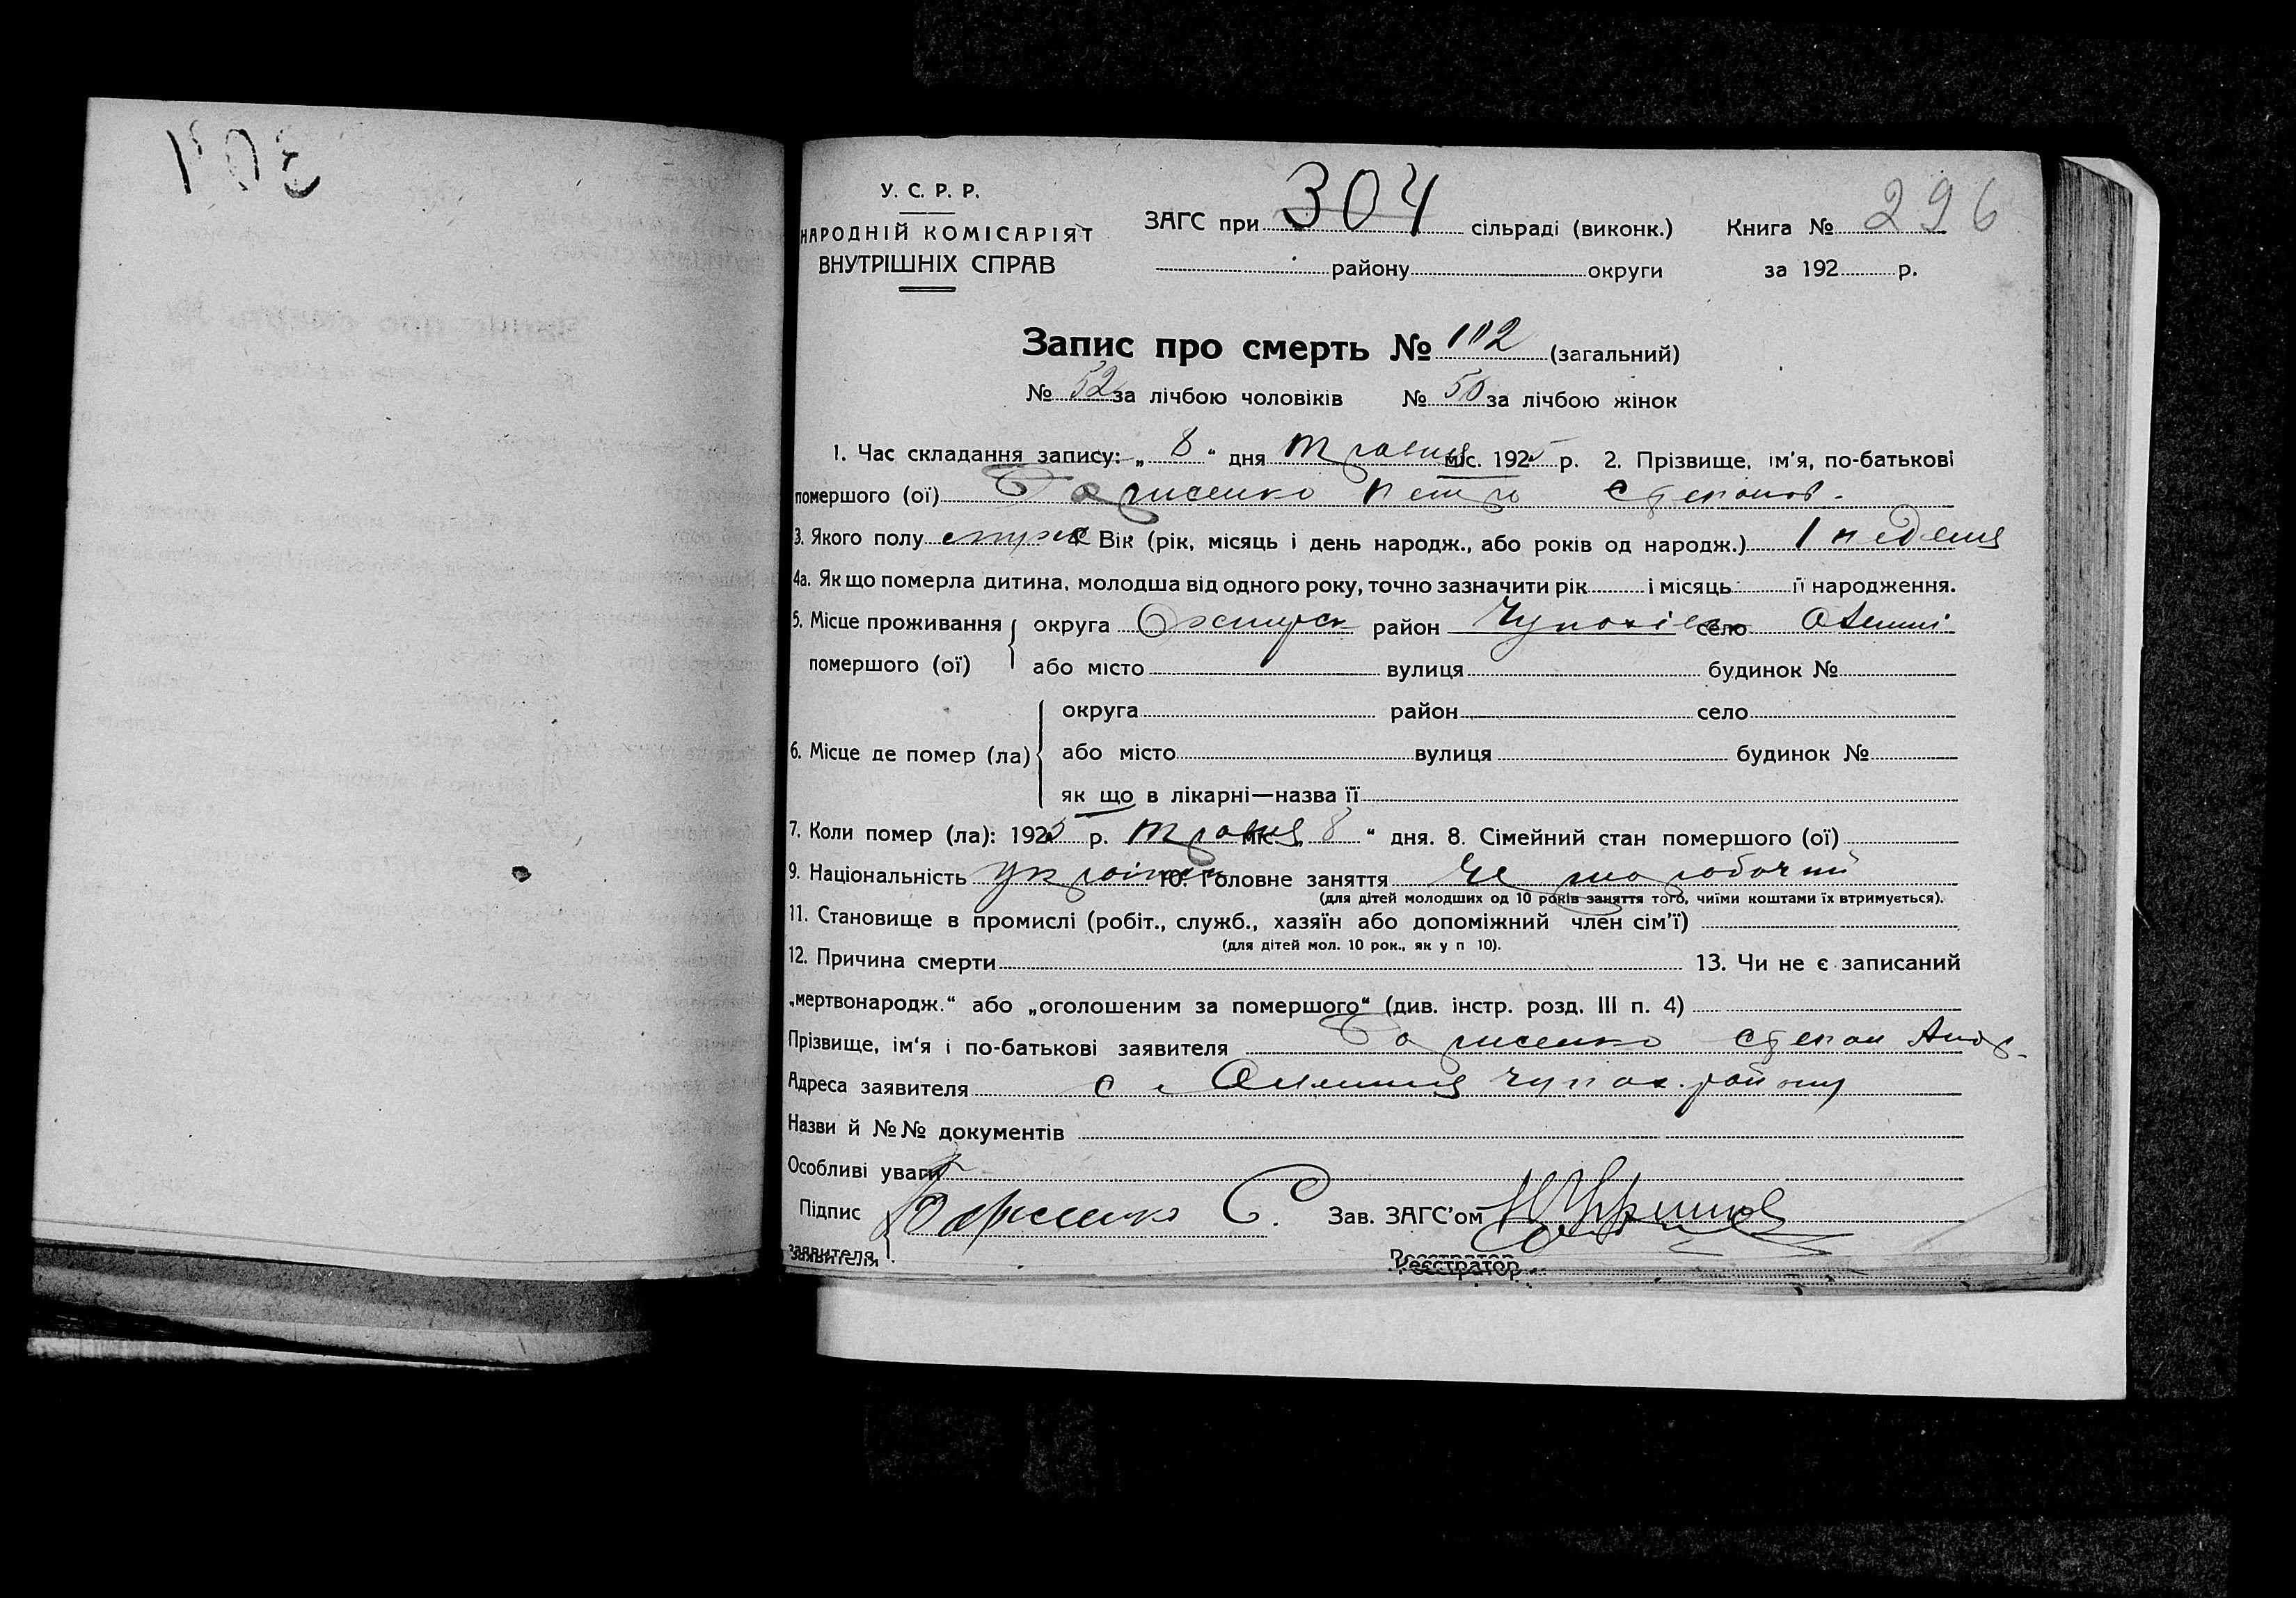 304
У. С. Р. Р.
НАРОДНІЙ КОМІСАРІЯТ
ВНУТРІШНІХ СПРАВ
ЗАГС при 304 сільраді (виконк.) Книга № 296
району округи за 192 р.
Запис про смерть № 102 (загальний)
№ 52 за лічбою чоловіків № 50 за лічбою жінок
1. Час складання запису: „ 8 “ дня травня міс. 1925 р. 2. Прізвище, ім'я, по-батькові
помершого (ої) Борисенко Петро Степанов.
3. Якого полу Вік (рік, місяць і день народж., або років од народж.) 1 неделя
4а. Як що померла дитина, молодша від одного року, точно зазначити рік і місяць її народження.
5. Місце проживання округа район село
помершого (ої) або місто вулиця будинок №
округа район село
6. Місце де помер (ла) або місто вулиця будинок №
як що в лікарні—назва її
7. Коли помер (ла): 1925 р. травня міс. „ 8 “ дня. 8. Сімейний стан помершого (ої)
9. Національність 10. Головне заняття
(для дітей молодших од 10 років заняття того, чиїми коштами їх втримується).
11. Становище в промислі (робіт., служб., хазяїн або допоміжний член сім'ї)
(для дітей мол. 10 рок., як у п 10).
12. Причина смерти 13. Чи не є записаний
„мертвонародж.“ або „оголошеним за помершого“ (див. інстр. розд. III п. 4)
Прізвище, ім'я і по-батькові заявителя Борисенко Степан Андр.
Адреса заявителя с. району
Назви й №№ документів
Особливі уваги
Підпис Борисенко С. Зав. ЗАГС'ом
заявителя
Реєстратор